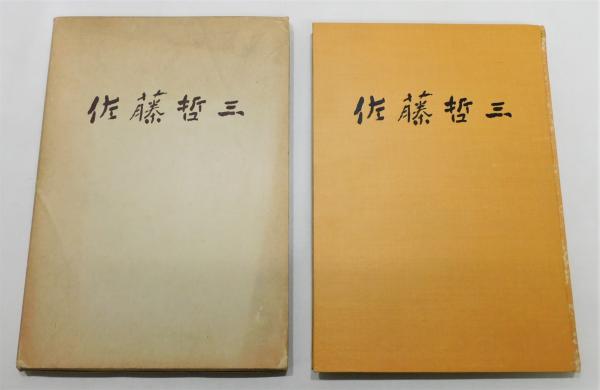 佐藤哲三
佐藤哲三